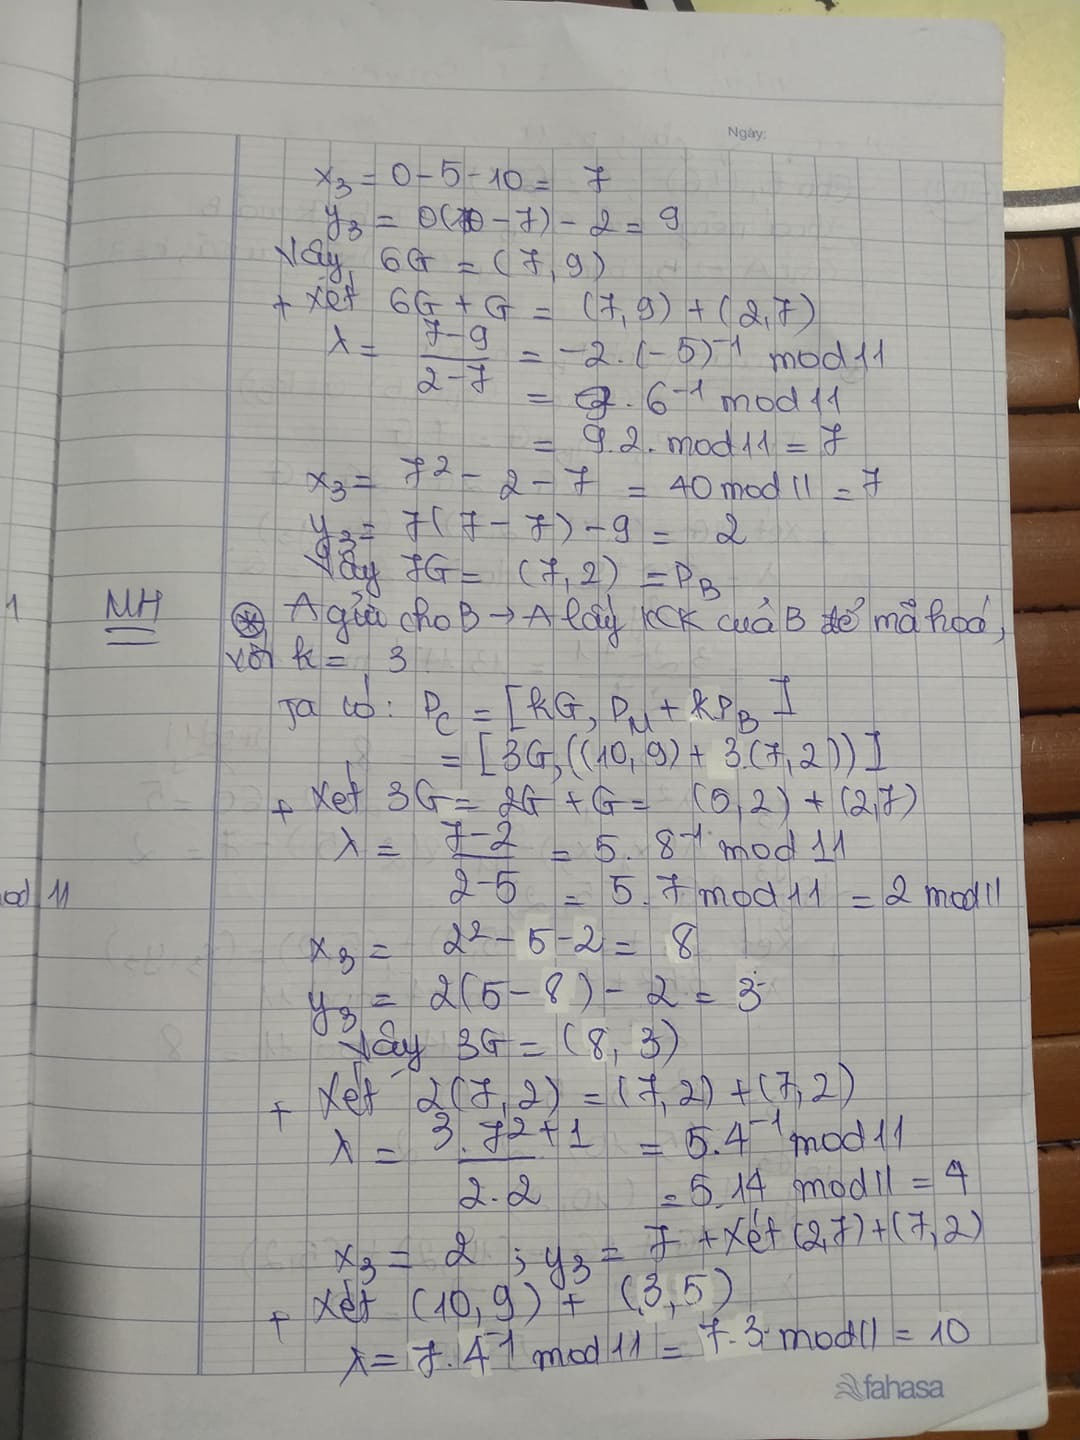 Ngày:
x₃ = 0 - 5 - 10 = 7
y₃ = 0(10 - 7) - 2 = 9
Vậy 6G = (7, 9)
+ Xét 6G + G = (7, 9) + (2, 7)
λ = (7-9)/(2-7) = -2. (-5)⁻¹ mod 11
= 9. 6⁻¹ mod 11
= 9.2. mod 11 = 7
x₃ = 7² - 2 - 7 = 40 mod 11 = 7
y₃ = 7(7 - 7) - 9 = 2
Vậy 7G = (7, 2) = P_B
1 MH ⊛ A gửi cho B → A lấy KCK của B để mã hoá,
với k = 3
Ta có: P_C = [kG, P_M + kP_B]
= [3G, ((10, 9) + 3.(7, 2))]
+ Xét 3G = 2G + G = (5, 2) + (2, 7)
λ = (7-2)/(2-5) = 5. 8⁻¹ mod 11
od 11 = 5. 7 mod 11 = 2 mod 11
x₃ = 2² - 5 - 2 = 8
y₃ = 2(5 - 8) - 2 = 3
Vậy 3G = (8, 3)
+ Xét 2(7, 2) = (7, 2) + (7, 2)
λ = (3. 7² + 1)/(2. 2) = 5.4⁻¹ mod 11
= 5.14 mod 11 = 4
x₃ = 2 ; y₃ = 7 + Xét (2,7) + (7, 2)
+ Xét (10, 9) + (3, 5)
λ = 7. 4⁻¹ mod 11 = 7. 3. mod 11 = 10
fahasa